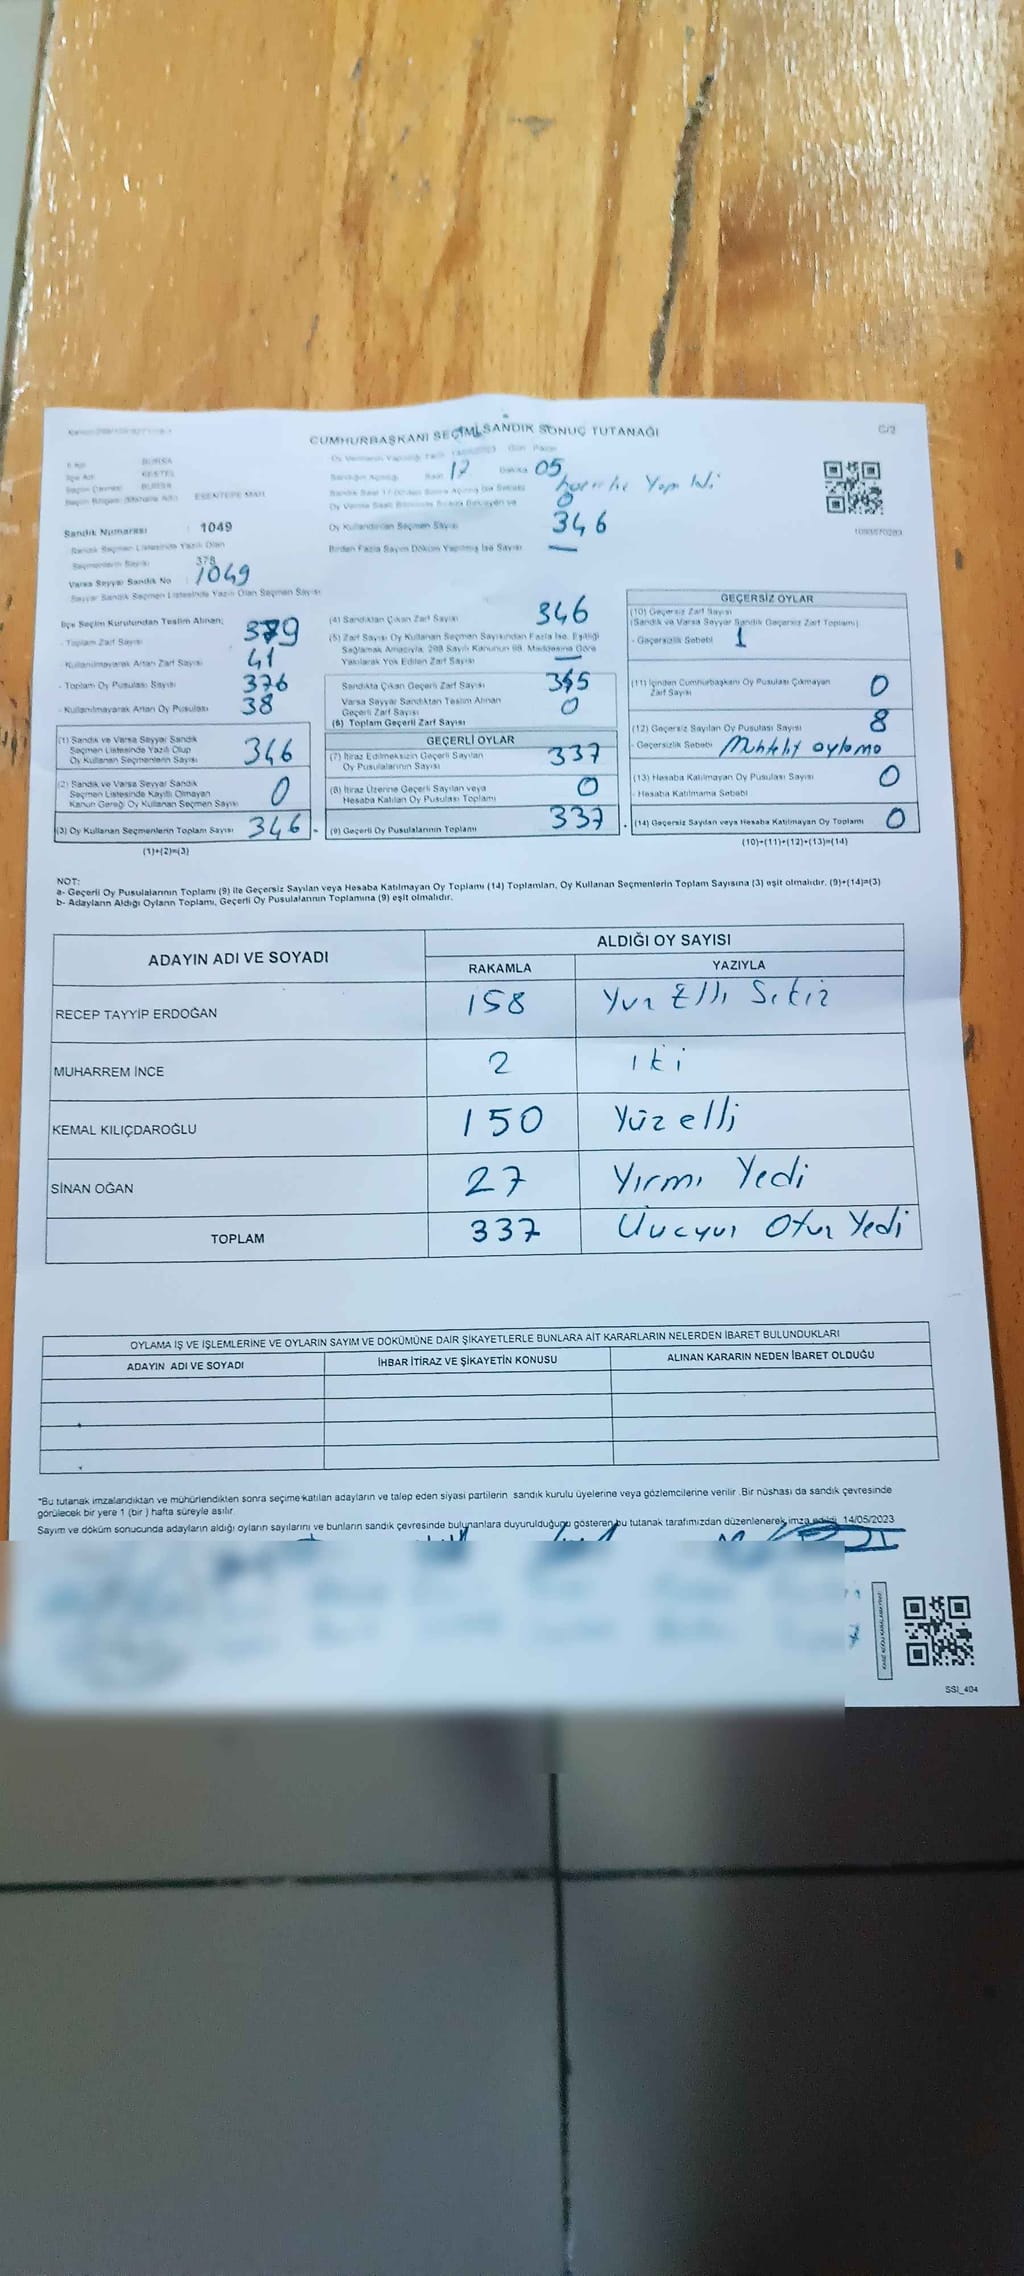 CUMHURBAŞKANI SEÇİMİ SANDIK SONUÇ TUTANAĞI
C/2
İl Adı BURSA
İlçe Adı KESTEL
Seçim Çevresi BURSA
Seçim Bölgesi (Mahalle Adı) ESENTEPE MAH.
Sandık Numarası : 1049
Sandık Seçmen Listesinde Yazılı Olan
Seçmenlerin Sayısı 378
Varsa Seyyar Sandık No : 1049
Seyyar Sandık Seçmen Listesinde Yazılı Olan Seçmen Sayısı
Sandığın Açıldığı Saat 17 Dakika 05
0
Oy Kullandırılan Seçmen Sayısı 346
Birden Fazla Sayım Döküm Yapılmış İse Sayısı —
İlçe Seçim Kurulundan Teslim Alınan;
- Toplam Zarf Sayısı 379
- Kullanılmayarak Artan Zarf Sayısı 41
- Toplam Oy Pusulası Sayısı 376
- Kullanılmayarak Artan Oy Pusulası 38
(1) Sandık ve Varsa Seyyar Sandık
Seçmen Listesinde Yazılı Olup
Oy Kullanan Seçmenlerin Sayısı 346
(2) Sandık ve Varsa Seyyar Sandık
Seçmen Listesinde Kayıtlı Olmayan
Kanun Gereği Oy Kullanan Seçmen Sayısı 0
(3) Oy Kullanan Seçmenlerin Toplam Sayısı 346
(1)+(2)=(3)
(4) Sandıktan Çıkan Zarf Sayısı 346
(5) Zarf Sayısı Oy Kullanan Seçmen Sayısından Fazla İse, Eşitliği
Sağlamak Amacıyla, 298 Sayılı Kanunun 98. Maddesine Göre
Yakılarak Yok Edilen Zarf Sayısı —
Sandıkta Çıkan Geçerli Zarf Sayısı 345
Varsa Seyyar Sandıktan Teslim Alınan
Geçerli Zarf Sayısı 0
(6) Toplam Geçerli Zarf Sayısı
GEÇERLİ OYLAR
(7) İtiraz Edilmeksizin Geçerli Sayılan
Oy Pusulalarının Sayısı 337
(8) İtiraz Üzerine Geçerli Sayılan veya
Hesaba Katılan Oy Pusulası Toplamı 0
(9) Geçerli Oy Pusulalarının Toplamı 337
GEÇERSİZ OYLAR
(10) Geçersiz Zarf Sayısı
(Sandık ve Varsa Seyyar Sandık Geçersiz Zarf Toplamı)
- Geçersizlik Sebebi 1
(11) İçinden Cumhurbaşkanı Oy Pusulası Çıkmayan
Zarf Sayısı 0
(12) Geçersiz Sayılan Oy Pusulası Sayısı 8
- Geçersizlik Sebebi Muhtelif oylama
(13) Hesaba Katılmayan Oy Pusulası Sayısı 0
- Hesaba Katılmama Sebebi
(14) Geçersiz Sayılan veya Hesaba Katılmayan Oy Toplamı 0
(10)+(11)+(12)+(13)=(14)
NOT:
a- Geçerli Oy Pusulalarının Toplamı (9) ile Geçersiz Sayılan veya Hesaba Katılmayan Oy Toplamı (14) Toplamları, Oy Kullanan Seçmenlerin Toplam Sayısına (3) eşit olmalıdır. (9)+(14)=(3)
b- Adayların Aldığı Oyların Toplamı, Geçerli Oy Pusulalarının Toplamına (9) eşit olmalıdır.
ADAYIN ADI VE SOYADI ALDIĞI OY SAYISI
RAKAMLA YAZIYLA
RECEP TAYYİP ERDOĞAN 158 Yuz Elli Sekiz
MUHARREM İNCE 2 iki
KEMAL KILIÇDAROĞLU 150 Yüz elli
SİNAN OĞAN 27 Yırmı Yedi
TOPLAM 337 Uucyuz Otuz Yedi
OYLAMA İŞ VE İŞLEMLERİNE VE OYLARIN SAYIM VE DÖKÜMÜNE DAİR ŞİKAYETLERLE BUNLARA AİT KARARLARIN NELERDEN İBARET BULUNDUKLARI
ADAYIN ADI VE SOYADI İHBAR İTİRAZ VE ŞİKAYETİN KONUSU ALINAN KARARIN NEDEN İBARET OLDUĞU
*Bu tutanak imzalandıktan ve mühürlendikten sonra seçime katılan adayların ve talep eden siyasi partilerin sandık kurulu üyelerine veya gözlemcilerine verilir. Bir nüshası da sandık çevresinde
görülecek bir yere 1 (bir) hafta süreyle asılır.
Sayım ve döküm sonucunda adayların aldığı oyların sayılarını ve bunların sandık çevresinde bulunanlara duyurulduğunu gösteren bu tutanak tarafımızdan düzenlenerek imza edildi. 14/05/2023
SSI_404